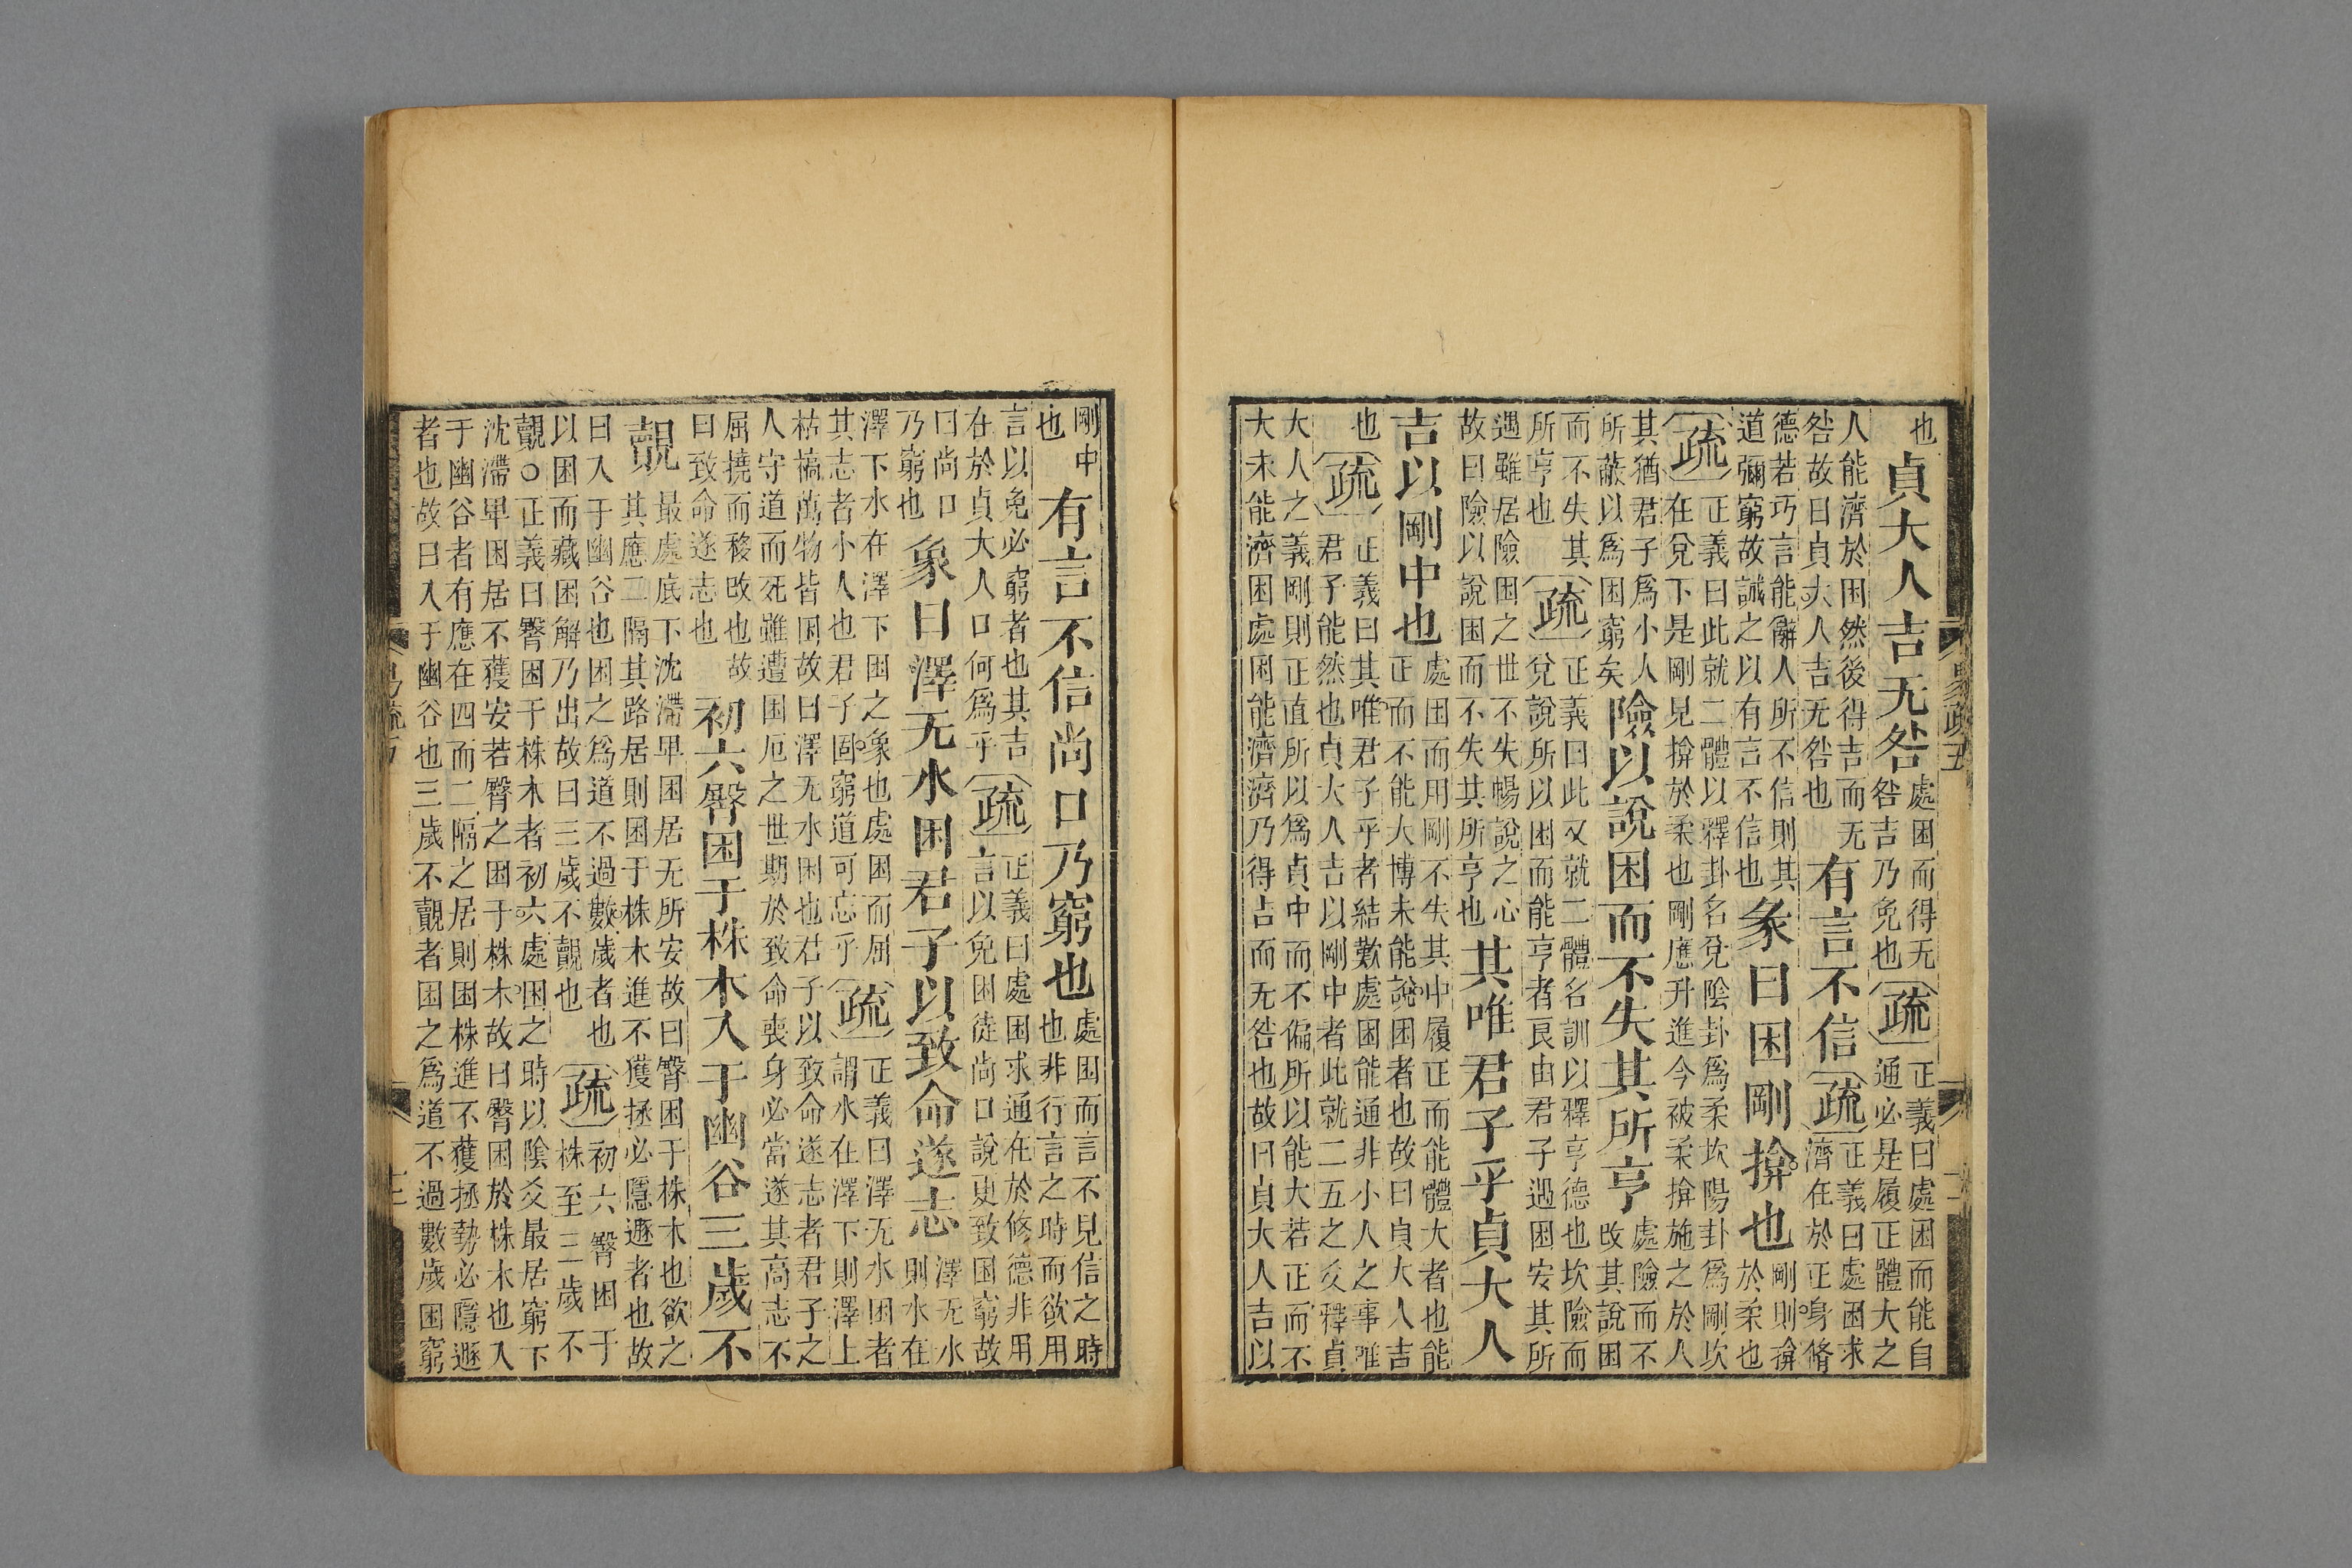 也貞大人吉无咎處困而得无咎吉乃免也疏正義曰處困而能自通必是履正體大之
人能濟於困然後得吉而无咎故曰貞大人吉无咎也有言不信疏正義曰處困求濟在於正身脩
德若巧言能辭人所不信則其道彌窮故誡之以有言不信也彖曰困剛揜也剛則揜於柔也
疏正義曰此就二體以釋卦名兌陰卦爲柔坎陽卦爲剛坎在兌下是剛見揜於柔也剛應升進今被柔揜施之於人
其猶君子爲小人所蔽以爲困窮矣險以說困而不失其所亨處險而不改其說困
而不失其所亨也疏正義曰此又就二體名訓以釋亨德也坎險而兌說所以困而能亨者良由君子遇困安其所
遇雖居險困之世不失暢說之心故曰險以說困而不失其所亨也其唯君子乎貞大人
吉以剛中也處困而用剛不失其中履正而能體大者也能正而不能大博未能說困者也故曰貞大人吉
也疏正義曰其唯君子乎者結歎處困能通非小人之事唯君子能然也貞大人吉以剛中者此就二五之爻釋貞
大人之義剛則正直所以爲貞中而不偏所以能大若正而不大未能濟困處困能濟濟乃得吉而无咎也故曰貞大人吉以
易疏五
十一
剛中也有言不信尚口乃窮也處困而言不見信之時也非行言之時而欲用
言以免必窮者也其吉在於貞大人口何爲乎疏正義曰處困求通在於修德非用言以免困徒尚口說更致困窮故
曰尚口乃窮也象曰澤无水困君子以致命遂志澤无水則水在
澤下水在澤下困之象也處困而屈其志者小人也君子固窮道可忘乎疏正義曰澤无水困者謂水在澤下則澤上
枯槁萬物皆困故曰澤无水困也君子以致命遂志者君子之人守道而死雖遭困厄之世期於致命喪身必當遂其高志不
屈撓而移改也故曰致命遂志也初六臀困于株木入于幽谷三歲不
覿最處底下沈滯卑困居无所安故曰臀困于株木也欲之其應二隔其路居則困于株木進不獲拯必隱遯者也故
曰入于幽谷也困之爲道不過數歲者也以困而藏困解乃出故曰三歲不覿也疏初六臀困于株至三歲不
覿○正義曰臀困于株木者初六處困之時以陰爻最居窮下沈滯卑困居不獲安若臀之困于株木故曰臀困於株木也入
于幽谷者有應在四而二隔之居則困株進不獲拯勢必隱遯者也故曰入于幽谷也三歲不覿者困之爲道不過數歲困窮